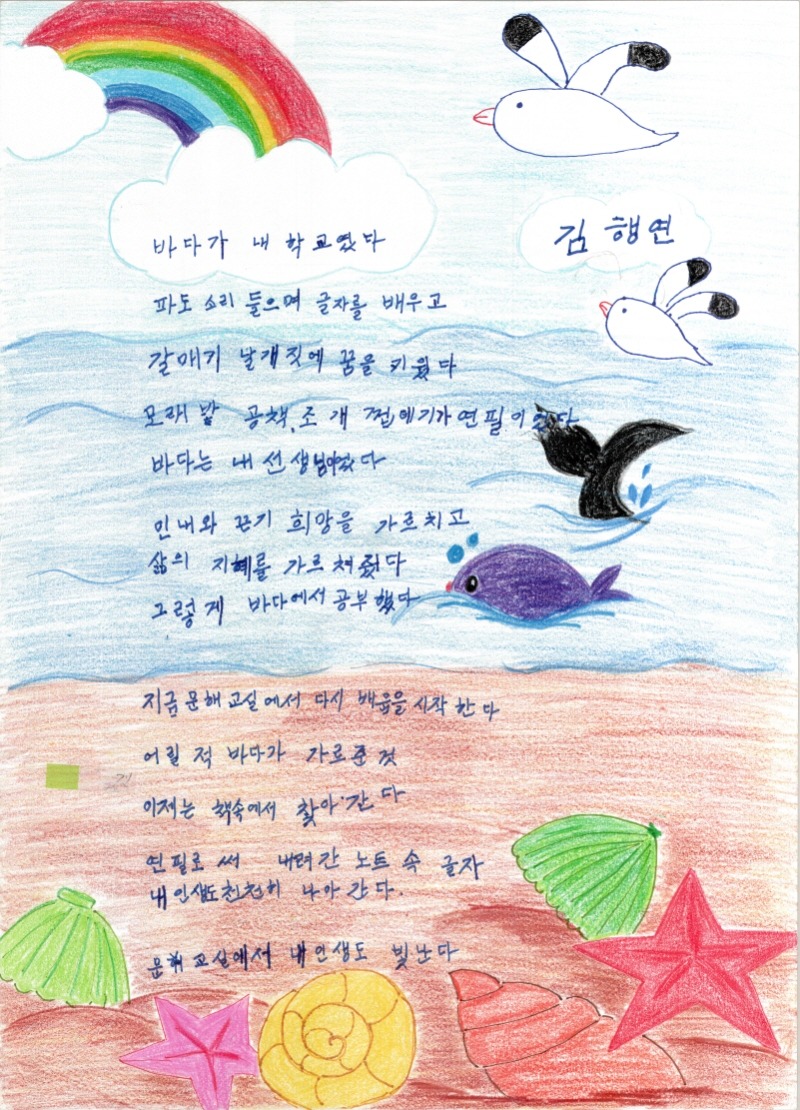 바다가 내 학교였다
김행연
파도 소리 들으며 글자를 배우고
갈매기 날개짓에 꿈을 키웠다
모래 밭 공책, 조개 껍데기가 연필이었다
바다는 내 선생님이었다
인내와 끈기 희망을 가르치고
삶의 지혜를 가르쳐줬다
그렇게 바다에서 공부했다
지금 문해교실에서 다시 배움을 시작한다
어릴 적 바다가 가르준 것
이제는 책속에서 찾아 간다
연필로 써 내려간 노트 속 글자
내 인생도 천천히 나아 간다.
문해 교실에서 내 인생도 빛난다